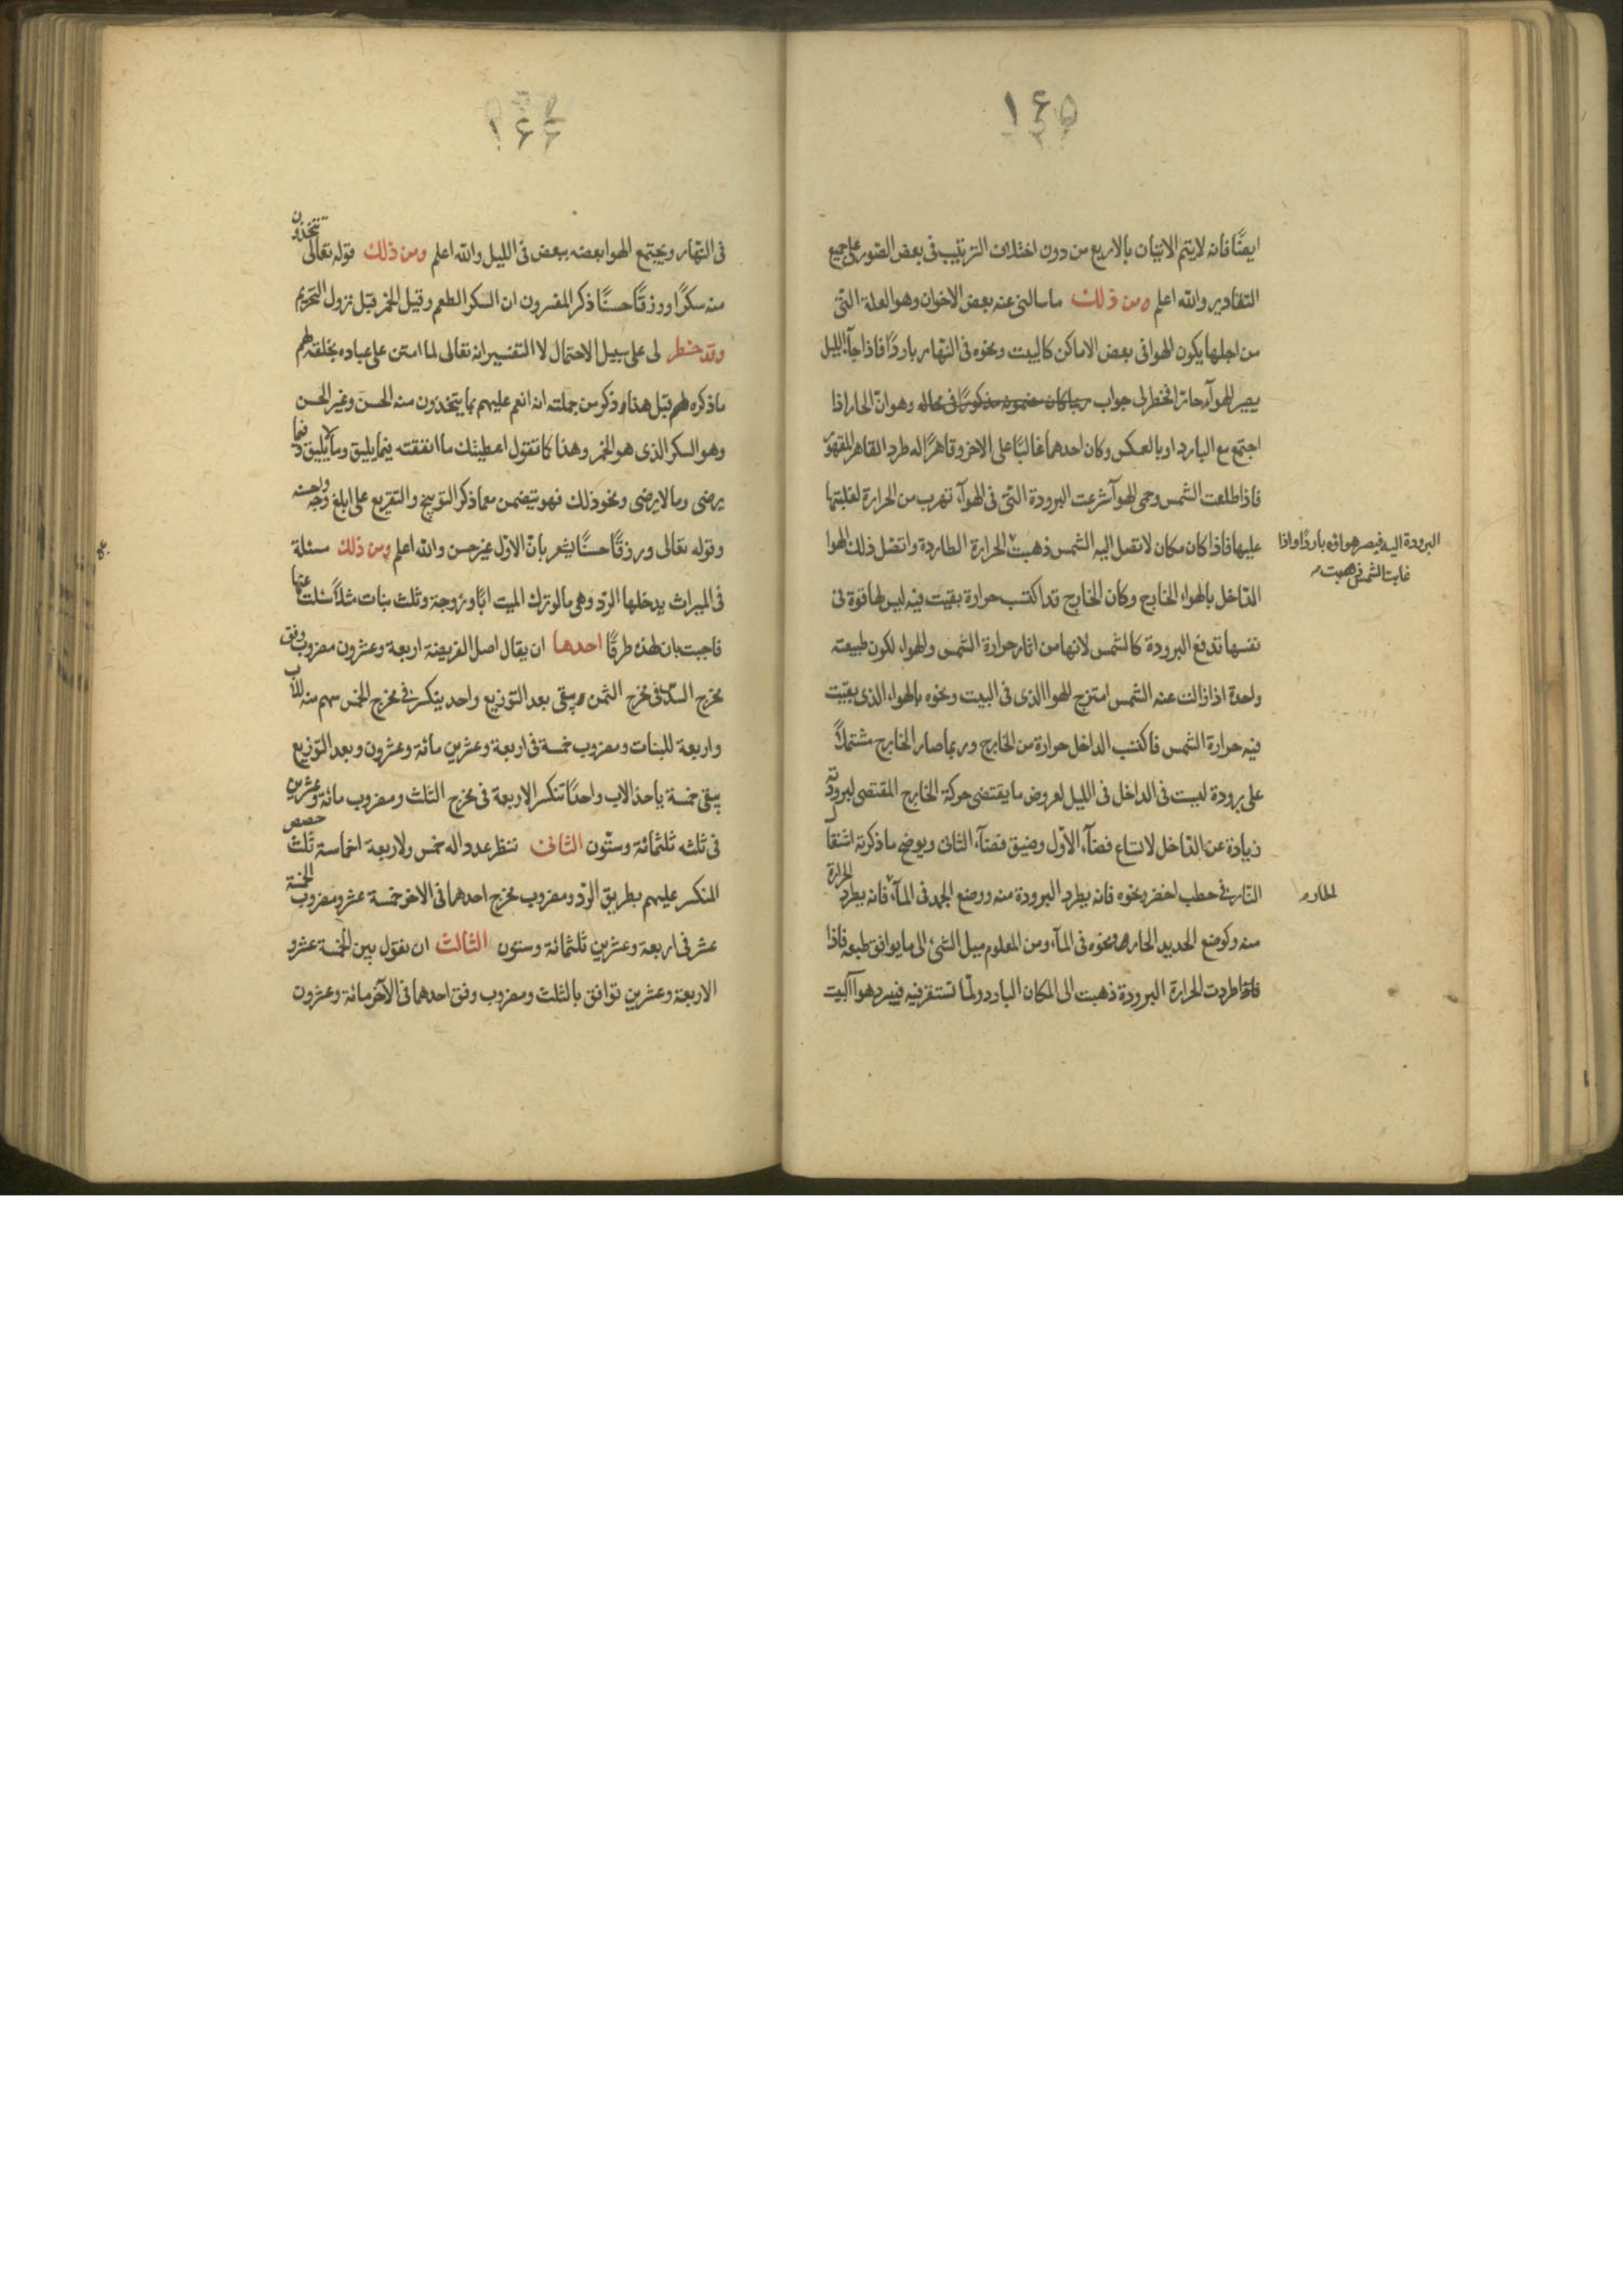 ١۶۵
ايضًا فانه لا يتم الاتيان بالاربع من دون اختلاف الترتيب فى بعض الصور على جميع
التقادير والله اعلم ومن ذلك ما سالنى عنه بعض الاخوان وهو العلة التى
من اجلها يكون الهوا فى بعض الاماكن كالبيت ونحوه فى النهار باردًا فاذا جآء الليل
يصير الهوآء حارّا فخطر لى جواب ربما كان مضمونه مذكورًا فى محاله وهو انّ الحار اذا
اجتمع مع البارد او بالعكس وكان احدهما غالبًا على الاخر وقاهرًا له طرد القاهر المقهور
فاذا طلعت الشمس وحمى الهوآ شرعت البرودة التى فى الهوآء تهرب من الحرارة لغلبتها
عليها فاذا كان مكان لا تصل اليه الشمس ذهبت الحرارة الطاردة واتصل ذلك الهوا
البرودة اليه فيصير هواؤه باردًا واذا
غابت الشمس ذهبت
الدّاخل بالهواء الخارج وكان الخارج قد اكتسب حرارة بقيت فيه ليس لها قوة فى
نفسها تدفع البرودة كالشمس لانها من اثار حرارة الشمس والهواء لكون طبيعته
واحدة اذا زالت عنه الشمس امتزج الهوا الذى فى البيت ونحوه بالهواء الذى بقيت
فيه حرارة الشمس فاكتسب الداخل حرارة من الخارج وربما صار الخارج مشتملاً
على برودة ليست فى الداخل فى الليل لعروض ما يقتضى حركة الخارج المقتضى لبرودته
زيادة عن الدّاخل لاتساع فضآء الاوّل وضيق فضآء الثانى ويوضح ما ذكرته اشتعال
النّار فى حطب اخضر ونحوه فانه يطرد البرودة منه ووضع الجمد فى المآء فانه يطرد الحرارة
الحار
منه وكوضع الحديد الحار ونحوه فى المآء ومن المعلوم ميل الشئ الى ما يوافق طبعه فاذا
فاذا طردت الحرارة البرودة ذهبت الى المكان البارد ولمّا تستقر فيه فيبرد هوآ البيت
١۶۶
فى النّهار ويجتمع الهوا بعضه ببعض فى الليل والله اعلم ومن ذلك قوله تعالى تتخذون
منه سكرًا ورزقًا حسنًا ذكر المفسرون ان السكر الطعم وقيل الخمر قبل نزول التحريم
وقد خطر لى على سبيل الاحتمال لا التفسير انه تعالى لما امتن على عباده بخلقه لهم
ما ذكره لهم قبل هذا وذكر من جملته انه انعم عليهم بما يتخذون منه الحسن وغير الحسن
وهو السكر الذى هو الخمر وهذا كما تقول اعطيتك ما انفقته فيما يليق وما لا يليق وفيما
يرضى وما لا يرضى ونحو ذلك فهو يتضمن مع ما ذكر التوبيخ والتقريع على ابلغ وجه واحسنه
وقوله تعالى ورزقًا حسنًا يشعر بانّ الاوّل غير حسن والله اعلم ومن ذلك مسئلة
فى الميراث يدخلها الردّ وهى ما لو ترك الميت ابًا وزوجة وثلث بنات مثلاً سئلت عنها
فاجبت بان لهذه طرقًا احدها ان يقال اصل الفريضة اربعة وعشرون مضروب وفق
مخرج السدس فى مخرج الثمن ويبقى بعد التوزيع واحد ينكسر فى مخرج الخمس سهم منه للاب
واربعة للبنات ومضروب خمسة فى اربعة وعشرين مائة وعشرون وبعد التوزيع
يبقى خمسة ياخذ الاب واحدًا تنكسر الاربعة فى مخرج الثلث ومضروب مائة وعشرين
فى ثلثه ثلثمائة وستّون الثانى ننظر عددا له خمس ولاربعة اخماسه ثلث حصص
المنكسر عليهم بطريق الردّ ومضروب مخرج احدهما فى الاخر خمسة عشر ومضروب الخمسة
عشر فى اربعة وعشرين ثلثمائة وستون الثالث ان نقول بين الخمسة عشر و
الاربعة وعشرين توافق بالثلث ومضروب وفق احدهما فى الآخر مائة وعشرون